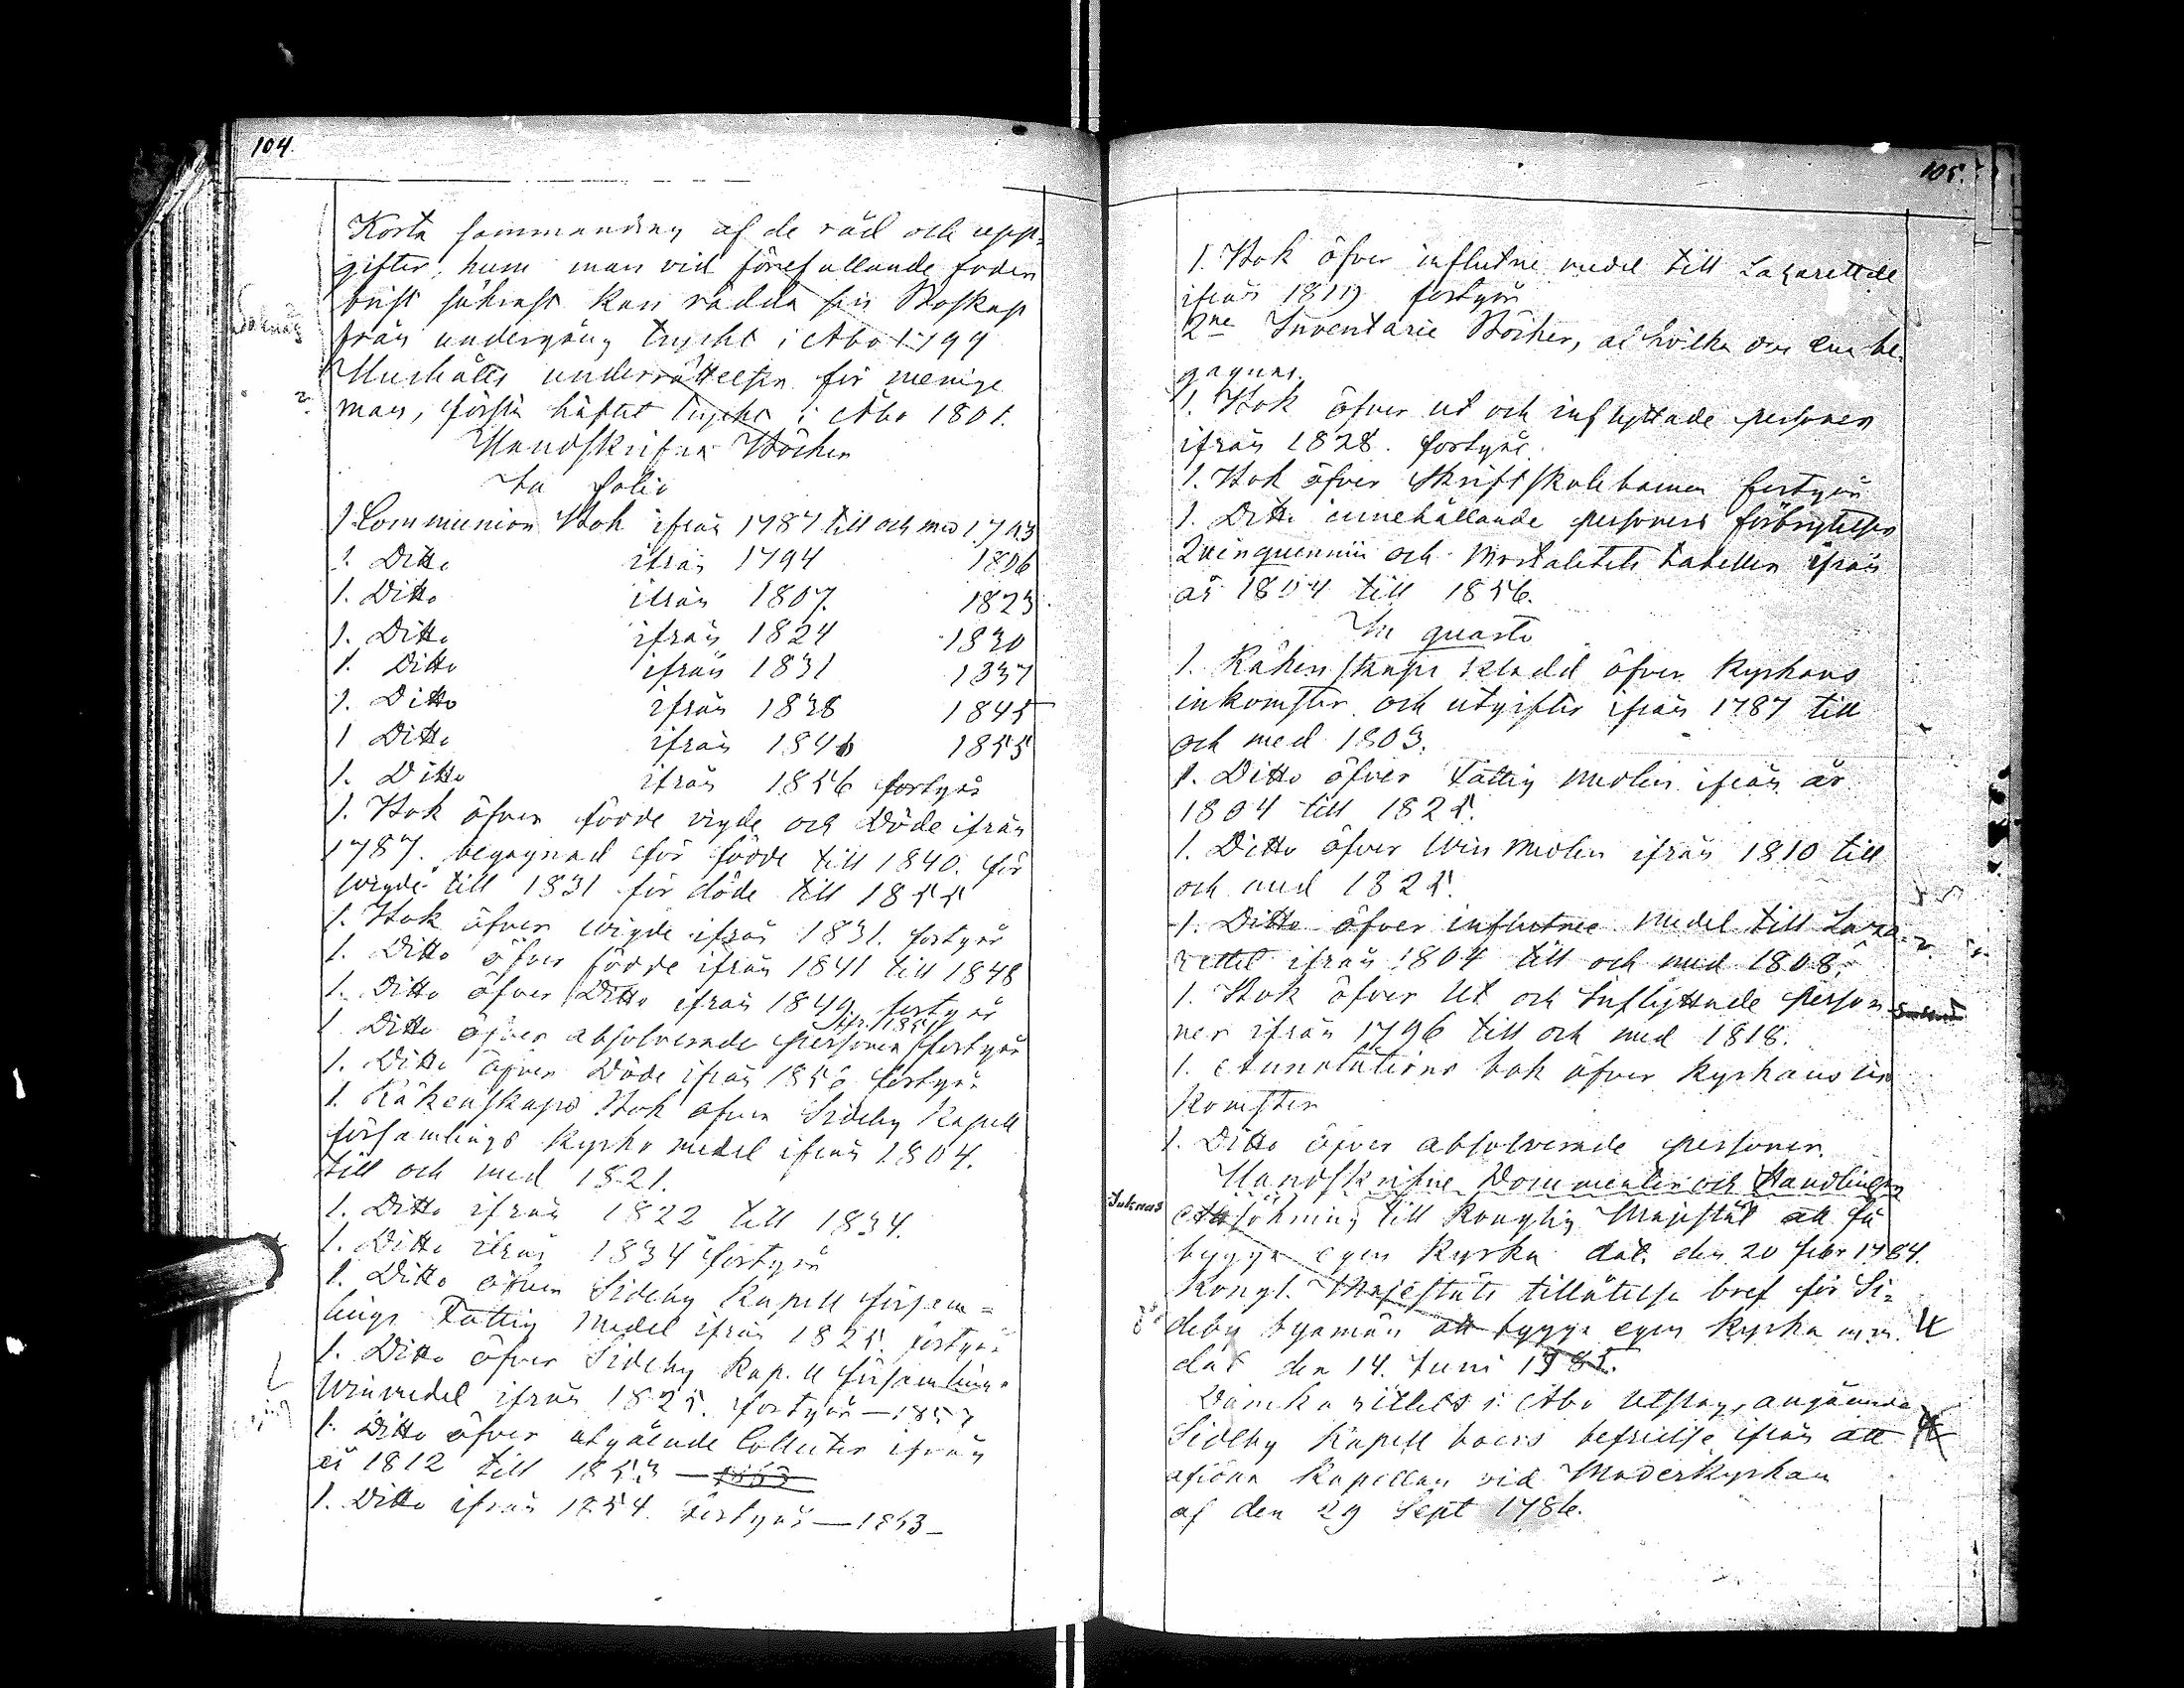 104.
Korta sammandrag af de råd och upp-
gifter, huru man vid förefallande foder
brist säkrast kan rädda sin Boskap
Saknas
från undergång tryckt i Åbo 1799
Hushålls underrättelser för menige
2.
man, första häftet tryckt i Åbo 1801.
Handskrifna Böcker
In folio
1. Communion Bok ifrån 1787 till och med 1793
1. Ditto ifrån 1794 1806
1. Ditto ifrån 1807. 1823
1. Ditto ifrån 1824 1830
1. Ditto ifrån 1831 1837
1. Ditto ifrån 1838 1845
1 Ditto ifrån 1846 1855
1. Ditto ifrån 1856 fortgår
1. Bok öfver födde vigde och Döde ifrån
1787. begagnad för födde till 1840. för
Wigde till 1831 för döde till 1855
1. Bok öfver wigde ifrån 1831. fortgår
1. Ditto öfver födde ifrån 1841 till 1848
1. Ditto öfver Ditto ifrån 1849. fortgår
1 Ditto öfver absolverade personer fortgår
1. Ditto öfver Döde ifrån 1856 fortgår
1. Räkenskaps Bok öfver Sideby Kapell
församlings Kyrko medel ifrån 1804.
till och med 1821.
1. Ditto ifrån 1822 till 1834.
1. Ditto ifrån 1834 fortgår
1. Ditto öfver Sideby Kapell försam=
lings Fattig Medel ifrån 1825. fortgår
1. Ditto öfver Sideby Kapell församlings
Winmedel ifrån 1825. fortgår — 1853
1. Ditto öfver utgående Collecter ifrån
år 1812 till 1853 — 1853
1. Ditto ifrån 1854. fortgår — 1863 —
105.
1. Bok öfver influtne medel till Lazarettet
ifrån 1819 fortgår
2ne Inventarie Böcker, af hvilka den ena be-
gagnas.
1. Bok öfver ut och inflyttade personer
ifrån 1828. fortgår.
1. Bok öfver Skriftskolebarnen fortgår
1. Ditto innehållande personers förbrytelser
Quinquennii och Mortalitets tabeller ifrån
år 1804 till 1856.
In quarto
1. Räkenskaps kladd öfver Kyrkans
inkomster och utgifter ifrån 1787 till
och med 1803.
1. Ditto öfver Fattig medlen ifrån år
1804 till 1825.
1. Ditto öfver Win medlen ifrån 1810 till
och med 1825.
1. Ditto öfver influtne medel till Laza-
rettet ifrån 1804 till och med 1808.
1. Bok öfver Ut och Inflyttade Perso-
ner ifrån 1796 till och med 1818.
1. Annotations bok öfver Kyrkans in
komster
1. Ditto öfver absolverade personer.
Handskrifne Documenter och Handlingar
Saknas
Ansökning till Konglig Majestät att få
bygga egen Kyrka dat. den 20 febr 1784.
Kongl. Majestäts tillåtelse bref för Si-
deby byamän att bygga egen Kyrka m.m.
dat den 14. Juni 1785.
Domkapitlets i Åbo Utslag, angående
Sideby Kapell boers befrielse ifrån att
aflöna Kapellan vid Moderkyrkan
af den 29 Sept 1786.